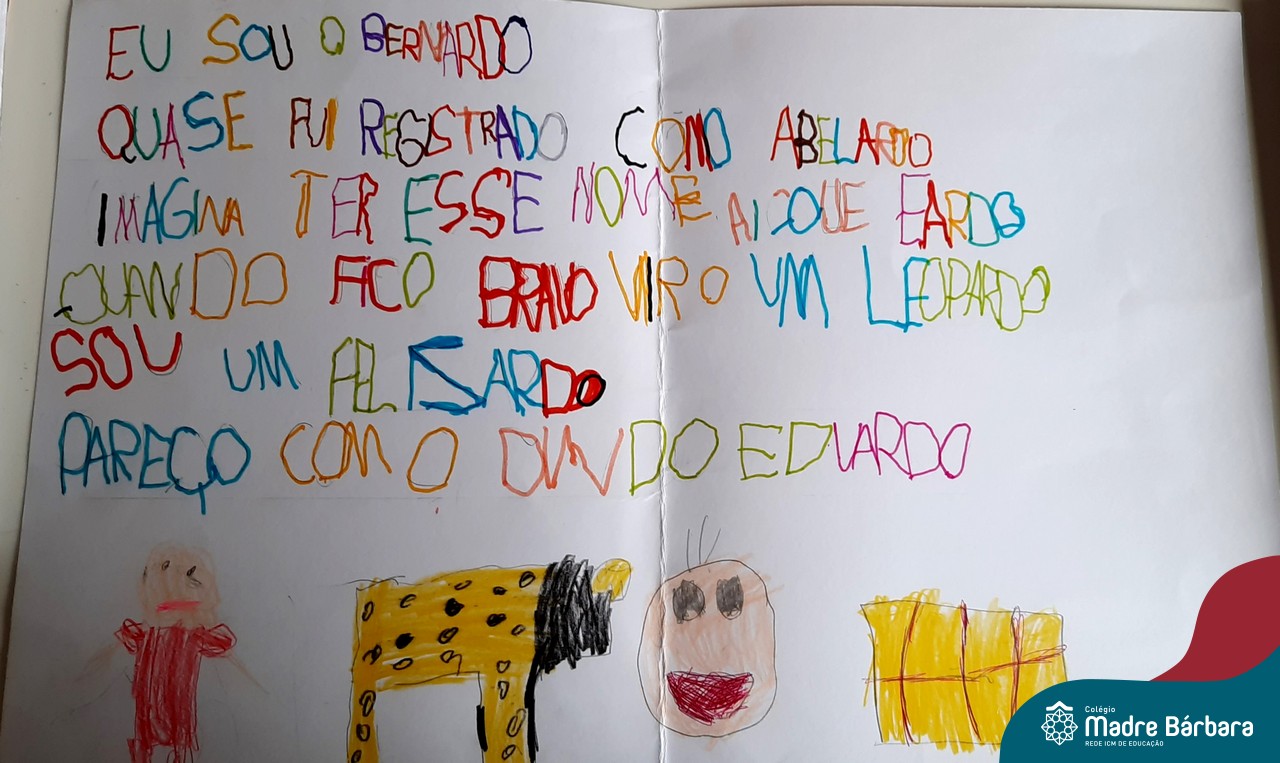 EU SOU O BERNARDO
QUASE FUI REGISTRADO COMO ABELARDO
IMAGINA TER ESSE NOME AI QUE FARDO
QUANDO FICO BRAVO VIRO UM LEOPARDO
SOU UM FELISARDO
PAREÇO COM O DINDO EDUARDO
Colégio
Madre Bárbara
REDE ICM DE EDUCAÇÃO